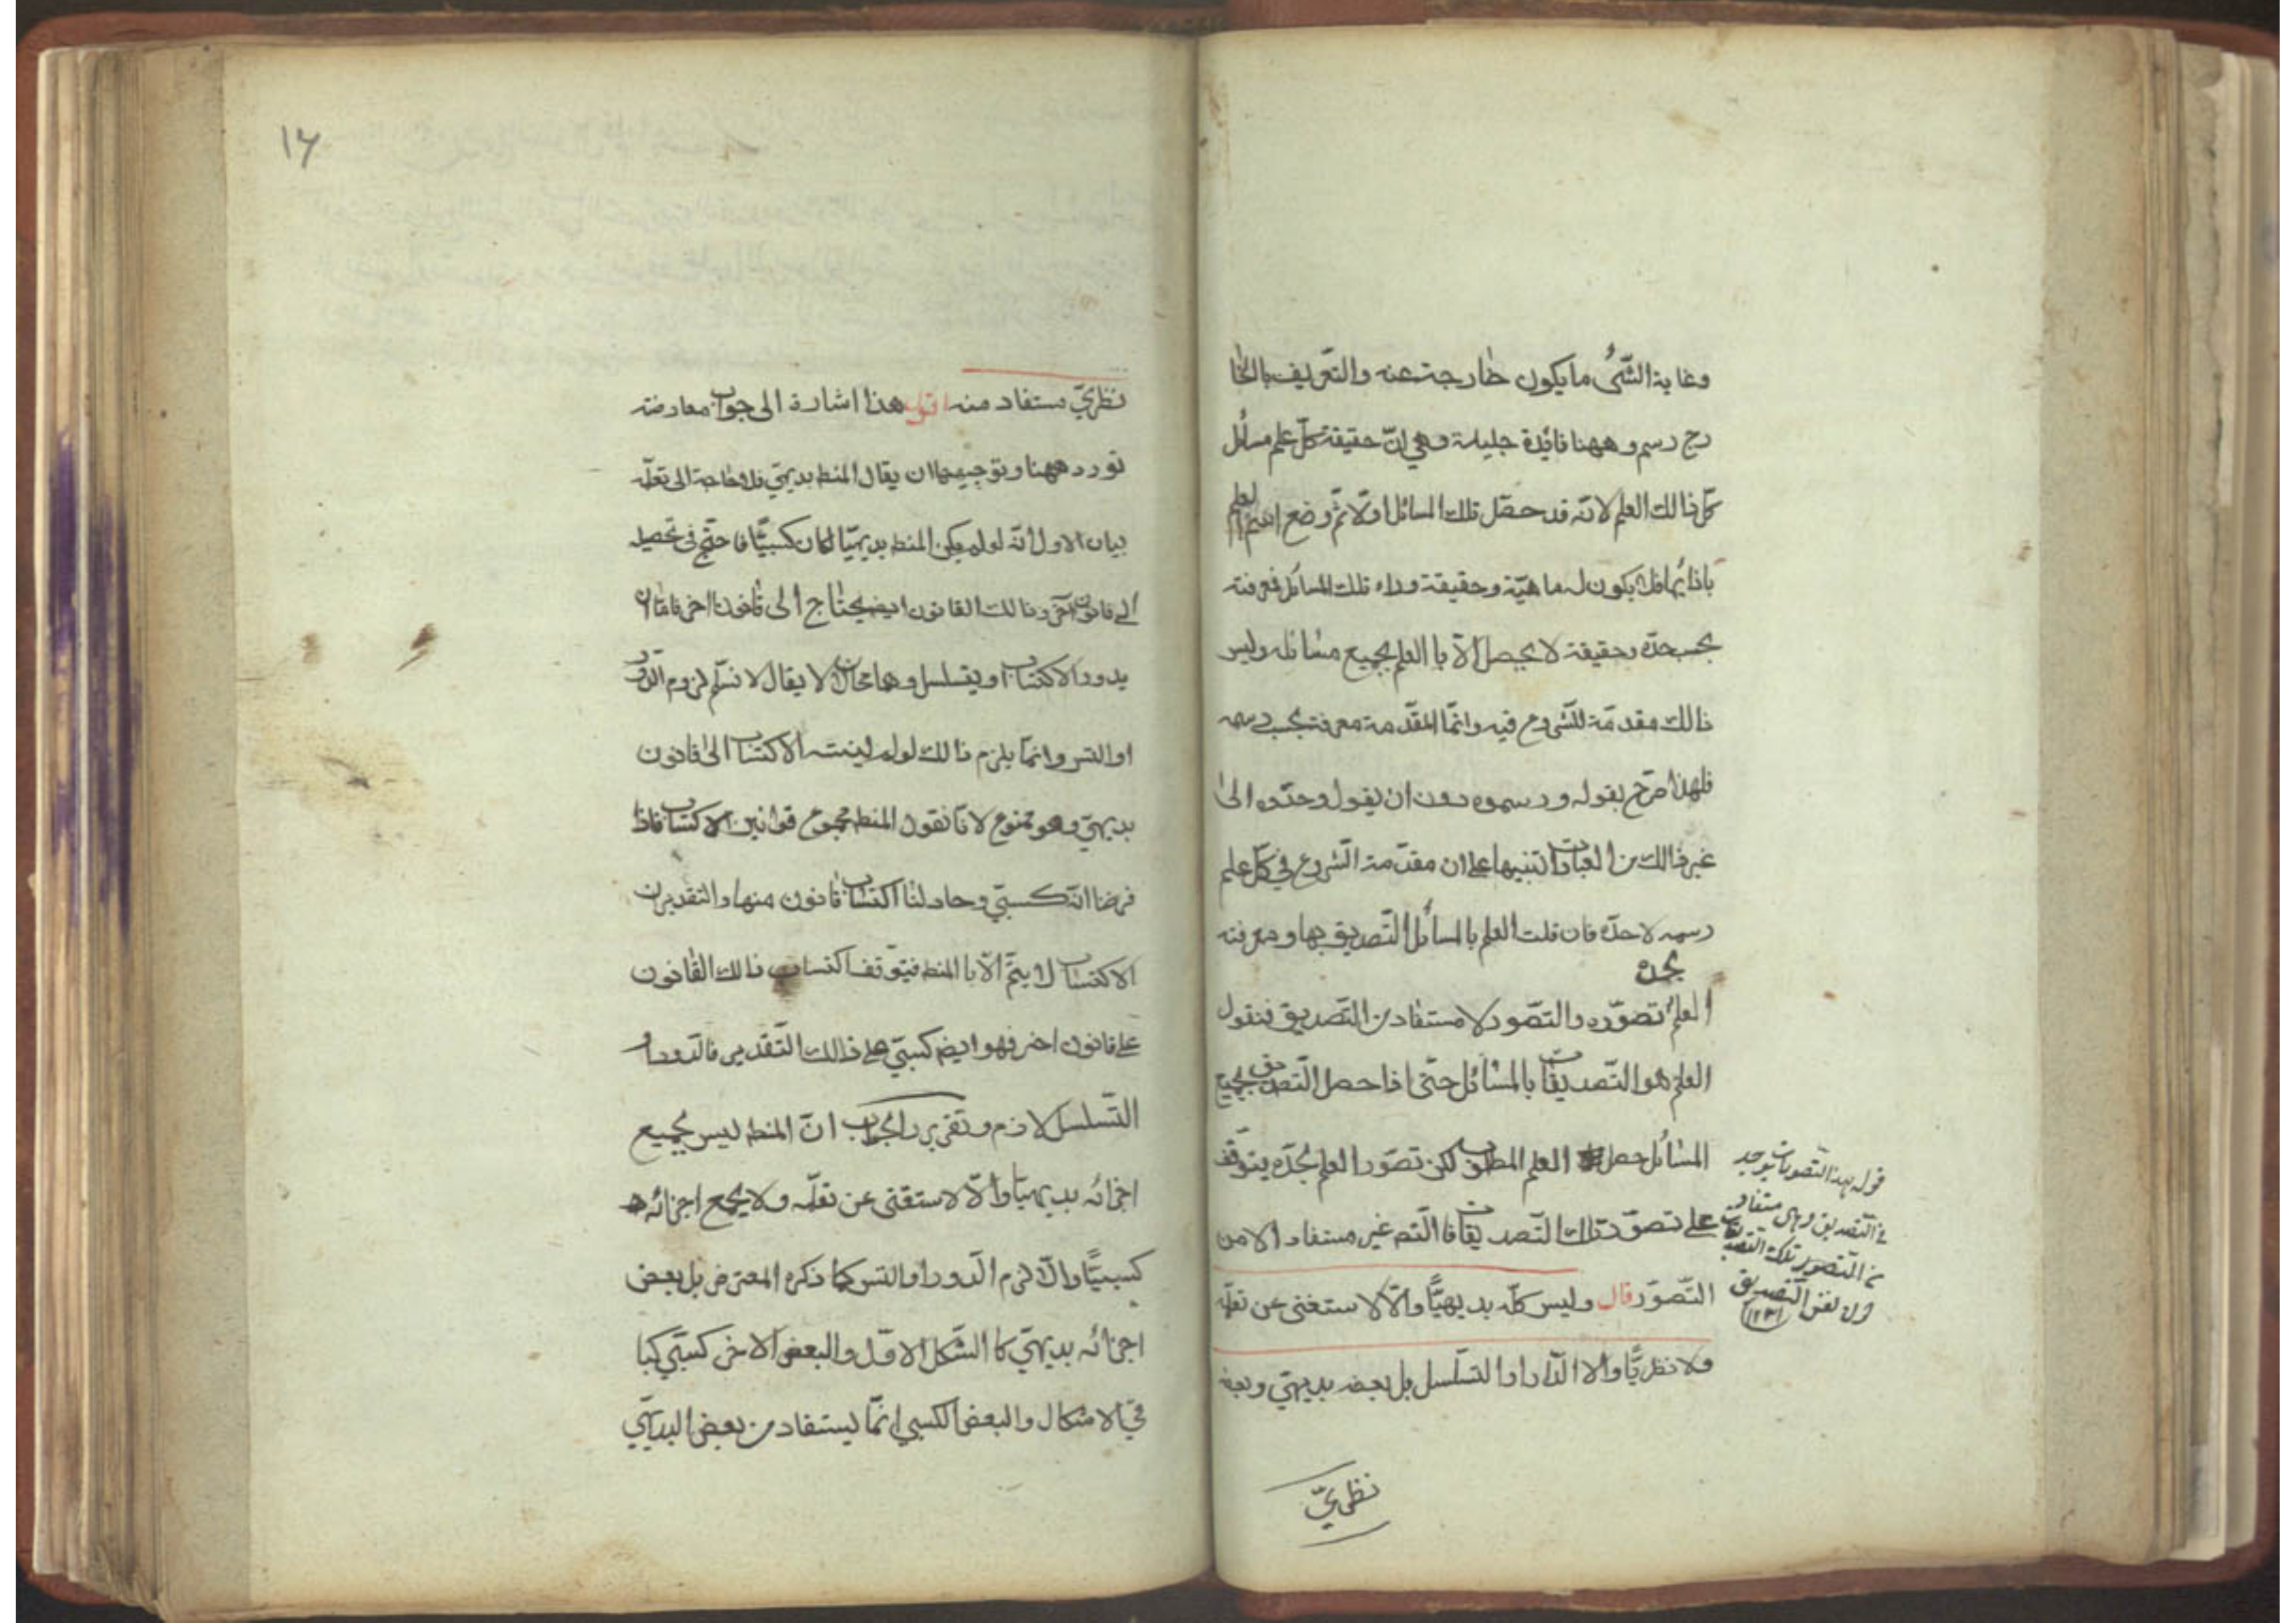 وغاية الشئ ما يكون خارجة عنه والتعريف بالخا
رج رسم وههنا فائدة جليلة وهي ان حقيقة كل علم مسائل
كل ذالك العلم لانه قد حصل تلك المسائل اولا ثم وضع اسم العلم
بازائها فلا يكون له ماهية وحقيقة وراء تلك المسائل فمعرفته
بحسب حده وحقيقة لا يحصل الا با العلم بجميع مسائله وليس
ذالك مقدمة للشروع فيه وانما المقدمة معرفته بحسب رسمه
فلهذا صرح بقوله ورسموه دون ان يقول وحدوه الى
غير ذالك من العبادات تنبيها على ان مقدمة الشروع في كل علم
رسمه لا حده فان قلت العلم بالمسائل التصديق بها ومعرفته
بحده
العلم تصوره والتصور لا مستفاد من التصديق فنقول
العلم هو التصديقات بالمسائل حتى اذا حصل التصديق بجميع
المسائل حصل العلم المطلوب لكن تصور العلم بحده يتوقف
على تصور تلك التصديقات فا التصـ غير مستفاد الا من
التصور قال وليس كله بديهيا والا لاستغنى عن تعلمه
ولا نظريا والا الدار او التسلسل بل بعضه بديهي وبعضه
نظري
قوله بهذا التصورات يوجد
في التصديق وهي مستفاد
من التصور تلك التصديقات
لان نفس التصديق
١٢
١٦
نظري مستفاد منه اقول هذا اشارة الى جواب معارضة
تورد ههنا وتوجيهها ان يقال المنطـ بديهي فلا حاجة الى تعلمه
بيان الاول انه لو لم يكن المنطـ بديهيا لكان كسبيا فاحتج في تحصيله
الى قانون آخر وذالك القانون ايضـ يحتاج الى قانون اخر فاما ان
يدور الاكتساب او يتسلسل وهما محالان لا يقال لا نسلم لزوم الدور
او التس وانما يلزم ذالك لو لم ينته الاكتساب الى قانون
بديهي وهو ممنوع لانا نقول المنطـ مجموع قوانين الاكتساب فاذا
فرضنا انه كسبي وحاولنا اكتساب قانون منها والتقدير ان
الاكتساب لا يتم الا با المنطـ فيتوقف اكتساب ذالك القانون
على قانون اخر فهو ايضـ كسبي على ذالك التقدير فالدور او
التسلسل لازم وتقرير الجواب ان المنطـ ليس بجميع
اجزائه بديهيا والا لاستغنى عن تعلمه ولا بجميع اجزائه
كسبيا والا لزم الدور او التس كما ذكره المعترض بل بعض
اجزائه بديهي كا الشكل الاول والبعض الاخر كسبي كبا
قي الاشكال والبعض الكسبي انما يستفاد من بعض البديهي